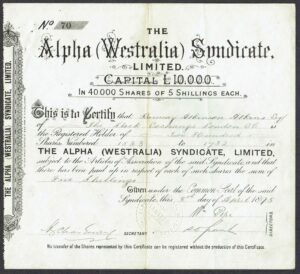 No 70
THE
Alpha (Westralia) Syndicate,
LIMITED.
CAPITAL £10,000
IN 40,000 SHARES OF 5 SHILLINGS EACH.
This is to Certify that Atkinson Adkins Esq
of Stock Exchange London E.C. is
the Registered Holder of Hundred
Shares Numbered to in
THE ALPHA (WESTRALIA) SYNDICATE, LIMITED,
subject to the Articles of Association of the said Syndicate, and that
there has been paid up in respect of each of such shares the sum of
Five Shillings.
Given under the Common Seal of the said
Syndicate, this day of April 1895
SECRETARY
DIRECTORS
No transfer of the Shares represented by this Certificate can be registered without the production of this Certificate.
THE ALPHA (WESTRALIA) SYNDICATE, LIMITED.